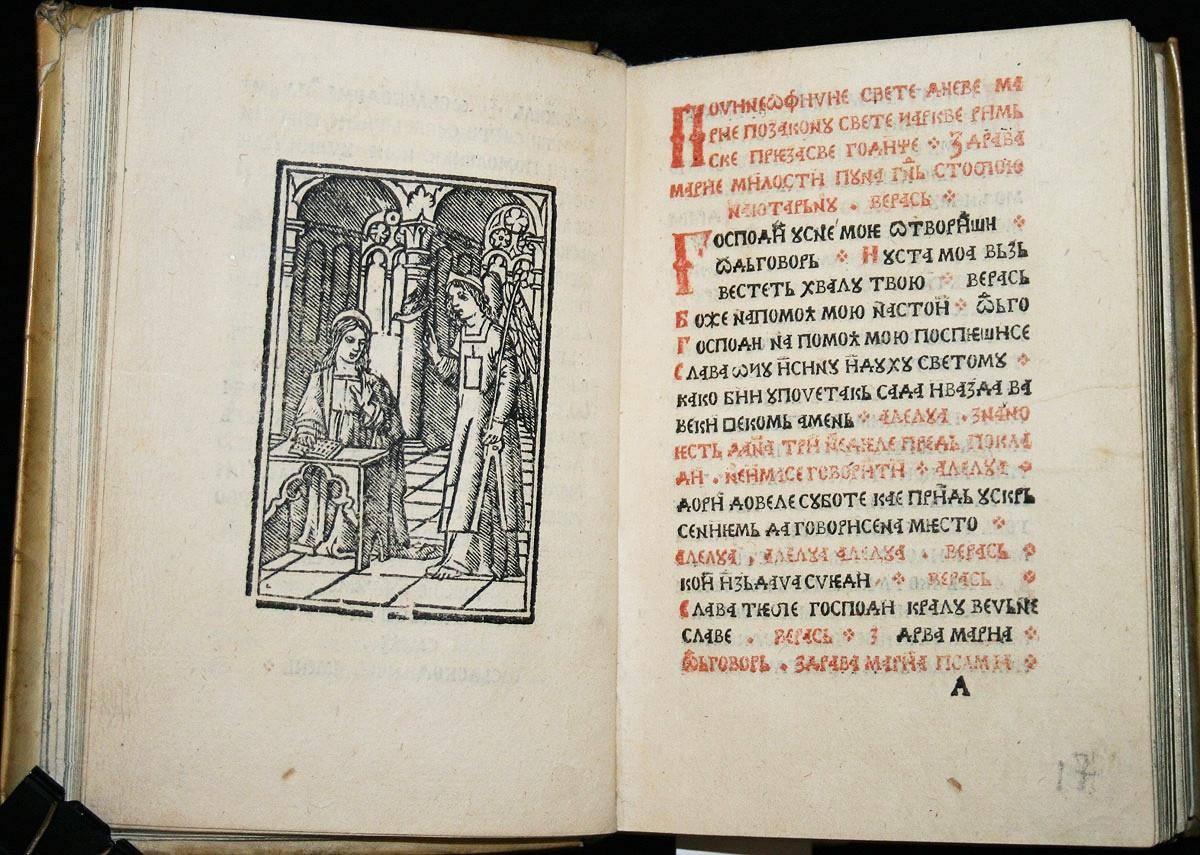 ПОУНЕѠФИУНЕ СВЕТЕ ДИЕВЕ МА
РИЕ ПОЗАКОНУ СВЕТЕ ЦАРКВЕ РИМЬ
СКЕ ПРИЗАСВЕ ГОДИЩЕ ⁘ ЗДРАВА
МАРИЕ МИЛОСТИ ПУНА
. ВЕРАСЬ ⁘
ГОСПОДИ УСНЕ МОЮ ѠТВОРИШИ ⁘
ѾЬГОВОРЬ ⁘ И УСТА МОА ВЬЗЬ
ВЕСТЕТЬ ХВАЛУ ТВОЮ ⁘ ВЕРАСЬ
БОЖЕ НАПОМОЋ МОЮ НАСТОИ ⁘ ѾЬГО
ГОСПОДИ НА ПОМОЋ МОЮ ПОСПѢШИСЕ
СЛАВА ѠЦУ ИСИНУ ИДУХУ СВЕТОМУ ⁘
КАКО БИИ УПОЧЕТАКЬ САДА ИВАЗДА ВА
ВЕКИ ВЕКОМЬ АМЕНЬ ⁘ АЛЕЛУА . ЗНАНО
ѤСТЬ ДАНА ТРИ НЕДИЛЕ ПРЕДЬ ПОКЛА
ДИ . НЕИМАСЕ ГОВОРИТИ ⁘ АЛЕЛУА ⁘
ДОРИ ДОВЕЛЕ СУБОТЕ КАЕ ПРИДЬ УСКРЬ
СЕНИЕМЬ ДА ГОВОРИСЕНА МѢСТО ⁘
АЛЕЛУА , АЛЕЛУА АЛЕЛУА . ВЕРАСЬ ⁘
⁘ ВЕРАСЬ ⁘
СЛАВА ГОСПОДИ КРАЛУ ВЕЧЬНЕ
СЛАВЕ . ВЕРАСЬ ⁘ З АРВА МАРИА ⁘
ѾЬГОВОРЬ . ЗДРАВА МАРИА ПСАМ ⁘
А
17